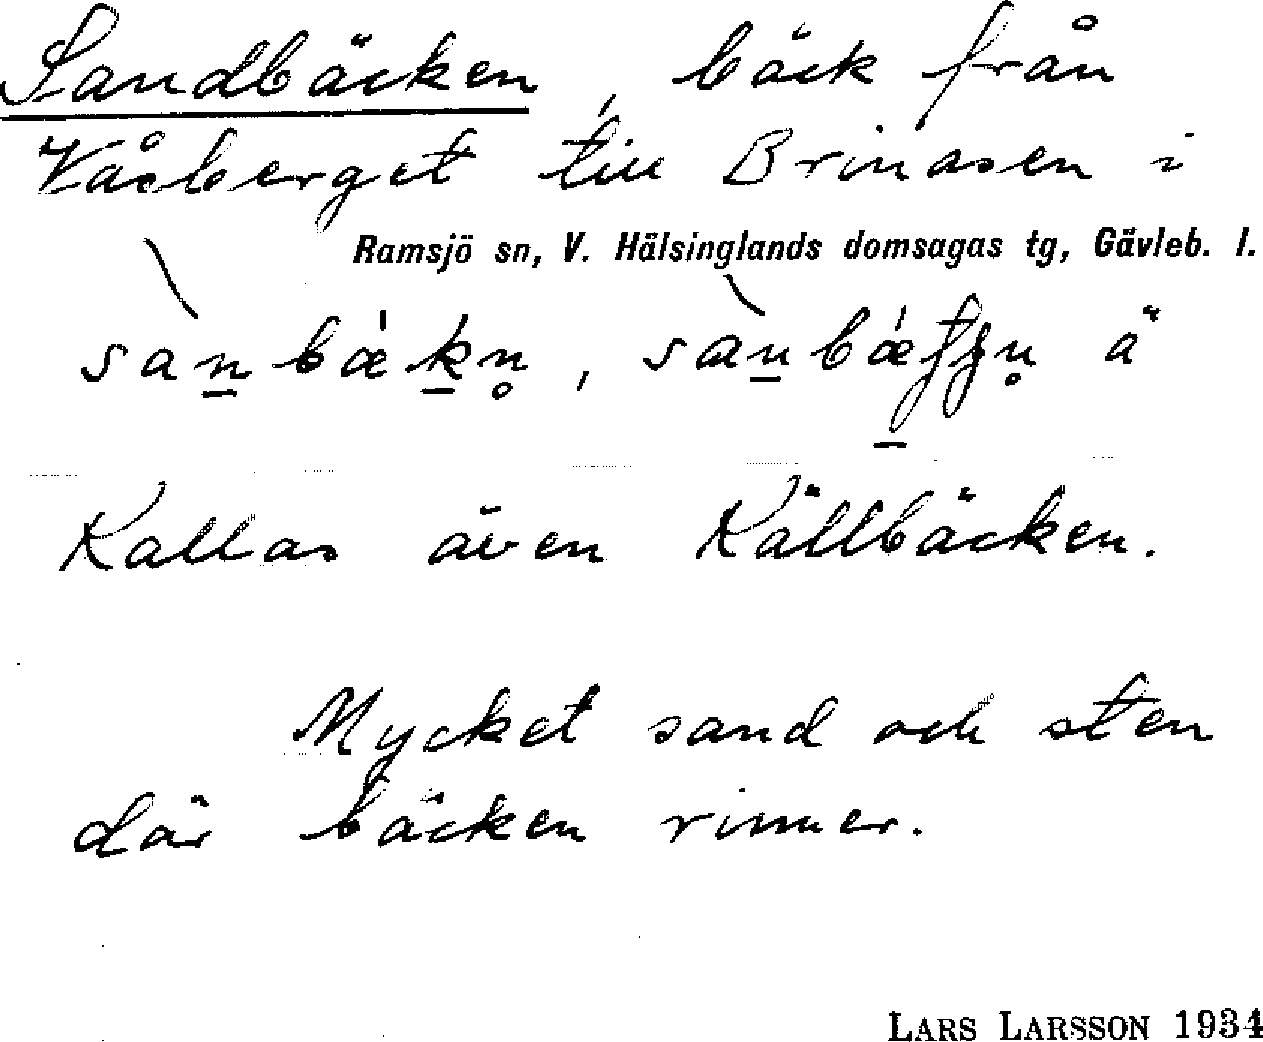 Sandbäcken, bäck från
Våsberget till Brinasen i
Ramsjö sn, V. Hälsinglands domsagas tg, Gävleb. l.
sanbækn̥, sanbæ
Kallas även Källbäcken.
Mycket sand och sten
där bäcken rinner.
LARS LARSSON 1934